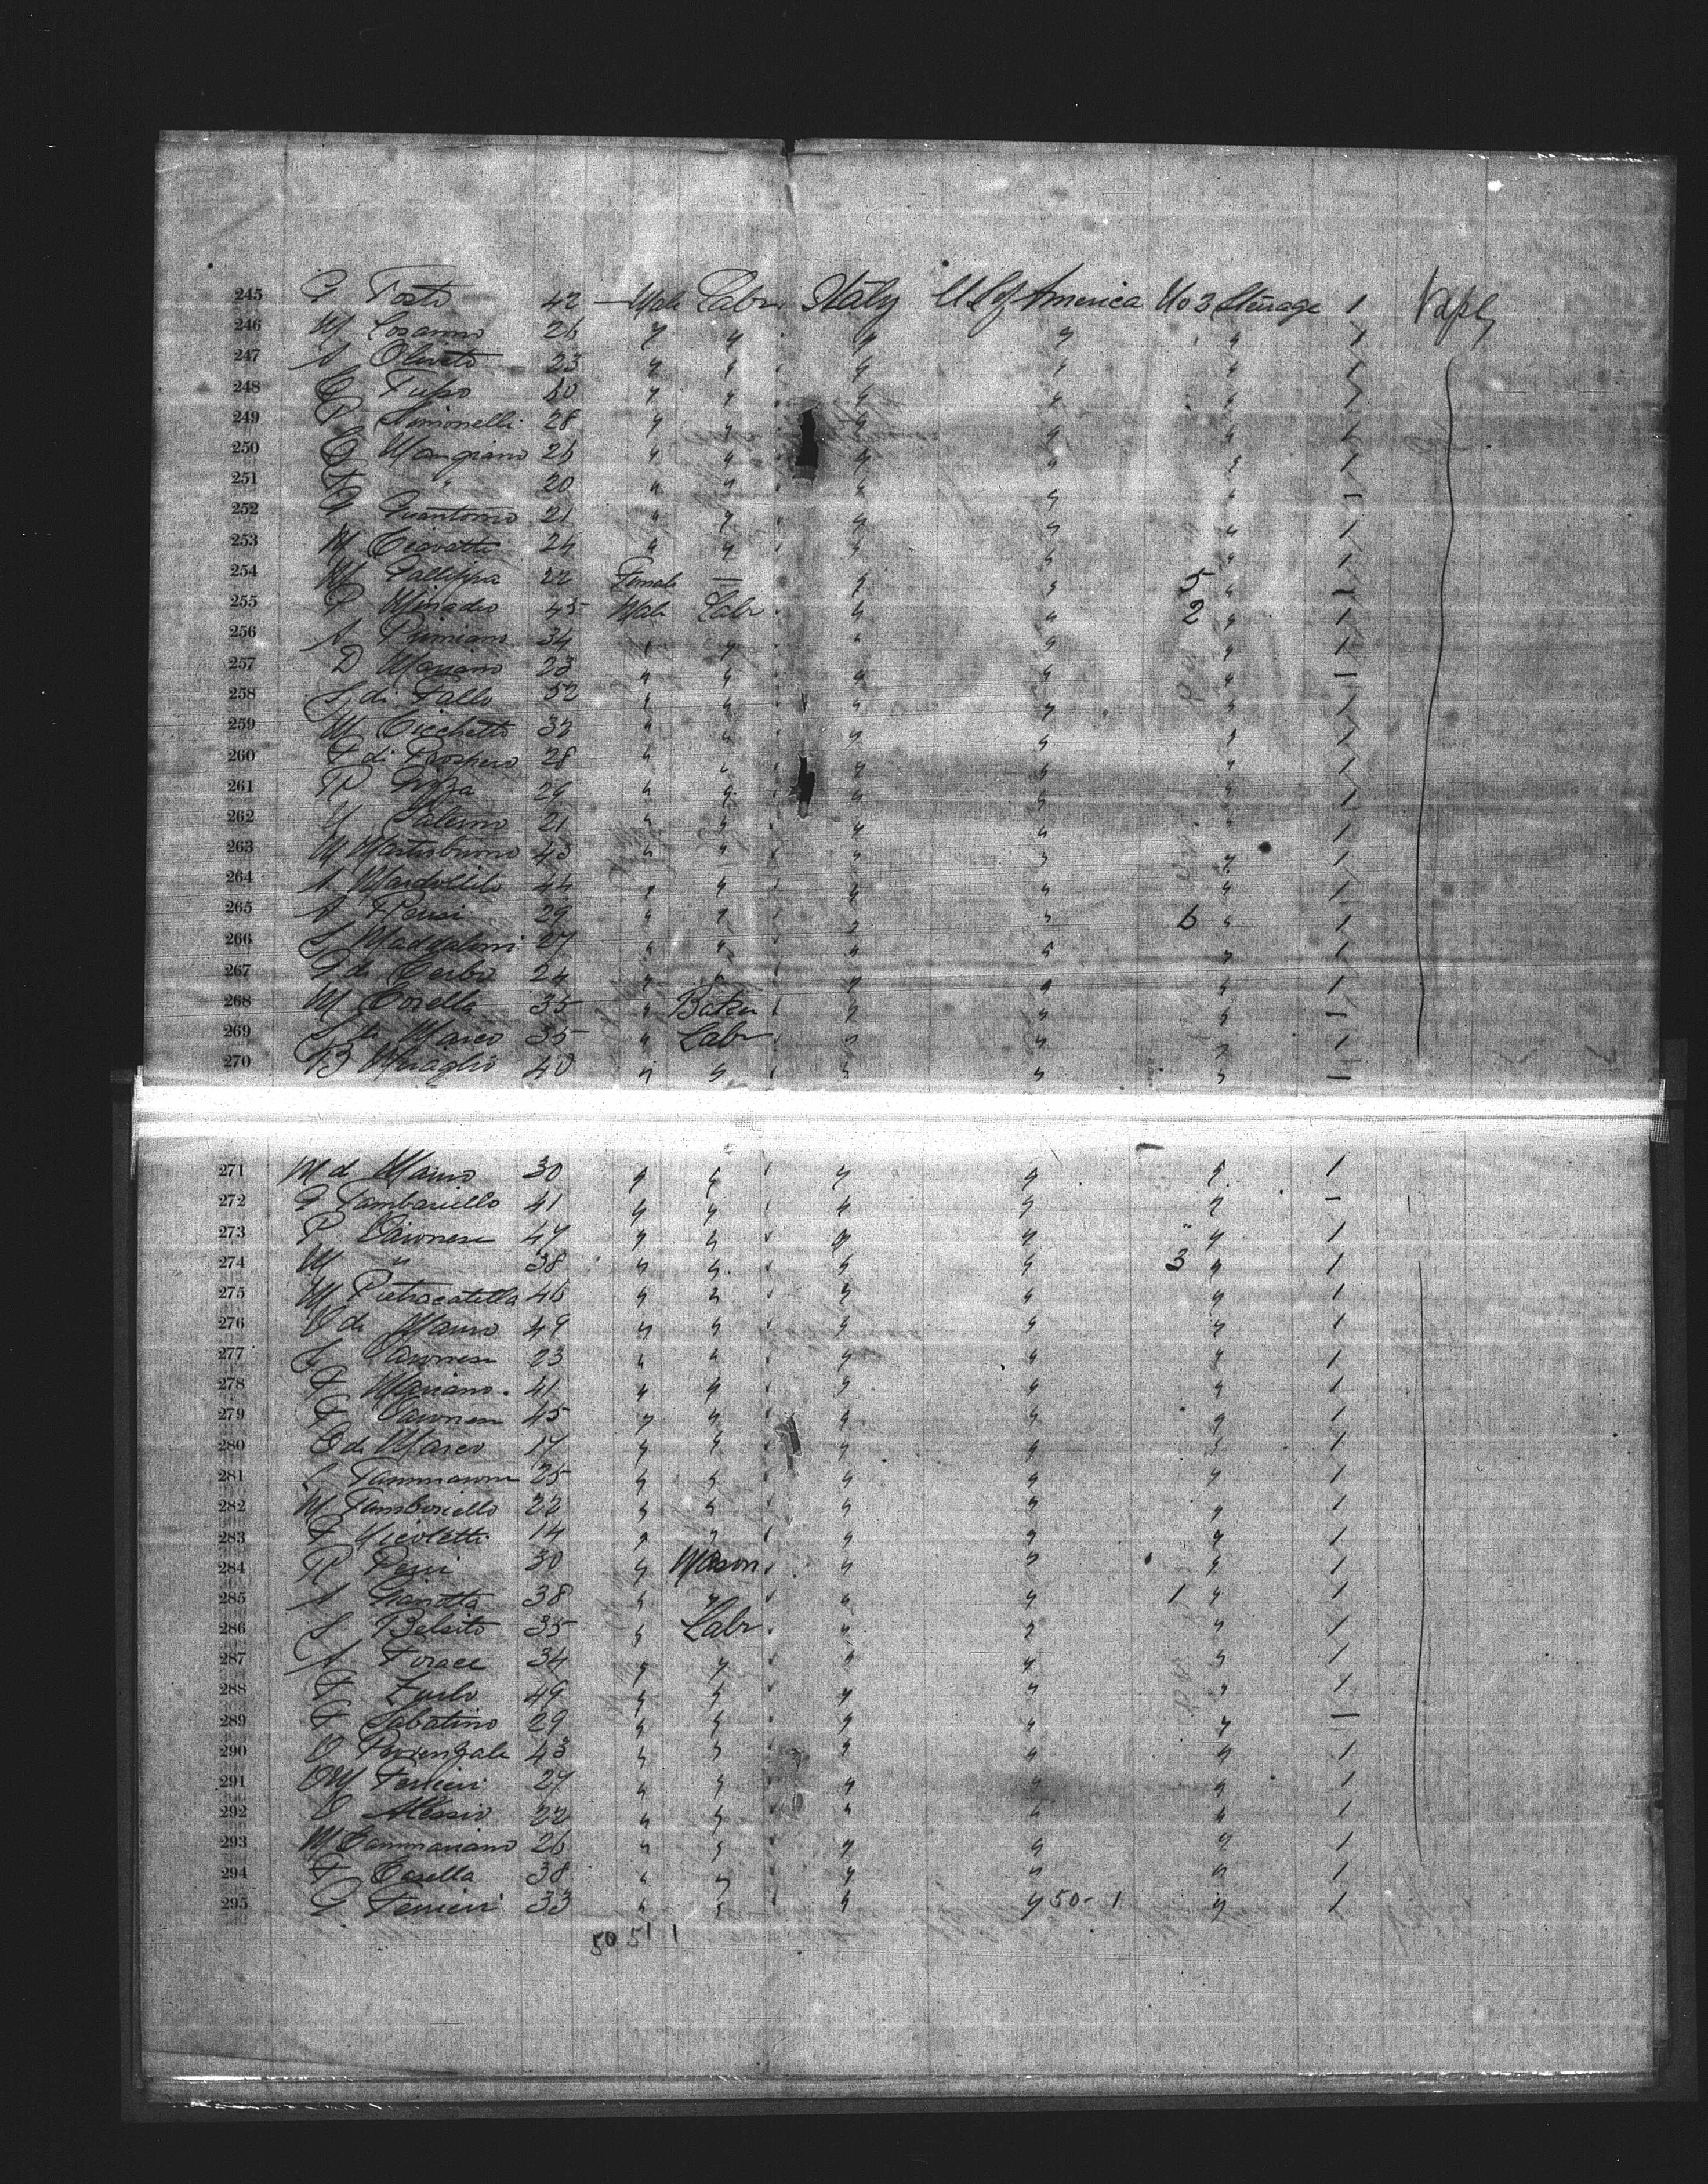 245 G Tosti 42 Male Labr Italy U S of America No 3 Steerage 1
246 M Cosanno 26 " " " " " 1
247 A Oliveto 23 " " " " " 1
248 G 40 " " " " " 1
249 P Simonelli 28 " " " " " 1
250 G Mangiano 26 " " " " " 1
251 F " 20 " " " " " 1
252 G Guantonio 21 " " " " " 1
253 M Ciavatta 24 " " " " " 1
254 M Gallippa 22 Female — " " 5 " 1
255 P Minadeo 45 Male Labr " " 2 " 1
256 A Primiano 34 " " " " " 1
257 D Mariano 23 " " " " " 1
258 S di Fallo 52 " " " " " 1
259 M Cicchetti 32 " " " " " 1
260 F di Prospero 28 " " " " " 1
261 R 29 " " " " " 1
262 Salerno 21 " " " " " 1
263 M 43 " " " " " 1
264 A Mardollilo 44 " " " " " 1
265 A Pensi 29 " " " " 6 " 1
266 S Maddaloni 27 " " " " " 1
267 G di Cerbo 24 " " " " " 1
268 M Corella 35 " Baker " " " 1
269 S di Marco 35 " Labr " " " 1
270 B Miraglio 40 " " " " " 1
271 M d Mauro 30 " " " " " 1
272 G Tambariello 41 " " " " " 1
273 P Varonese 47 " " " " " 1
274 M " 38 " " " " 3 " 1
275 M Pietracatella 46 " " " " " 1
276 V di Mauro 49 " " " " " 1
277 S Varonese 23 " " " " " 1
278 F Mariano 41 " " " " " 1
279 F Varonese 45 " " " " " 1
280 O di Marco 17 " " " " " 1
281 C Tammarine 25 " " " " " 1
282 M Tamboriello 22 " " " " " 1
283 F Nicoletti 14 " " " " " 1
284 R Pessi 30 " Mason " " " 1
285 A Gianotta 38 " " " " 1 " 1
286 S Belsito 35 " Labr " " " 1
287 A Forace 34 " " " " " 1
288 F Zurlo 49 " " " " " 1
289 F Sabatino 29 " " " " " 1
290 V Provenzale 43 " " " " " 1
291 Ferrieri 27 " " " " " 1
292 V Alessio 22 " " " " " 1
293 M Cammariano 26 " " " " " 1
294 F Casella 38 " " " " " 1
295 G Ferrieri 33 " " " " 50 - 1 " 1
50 51 1